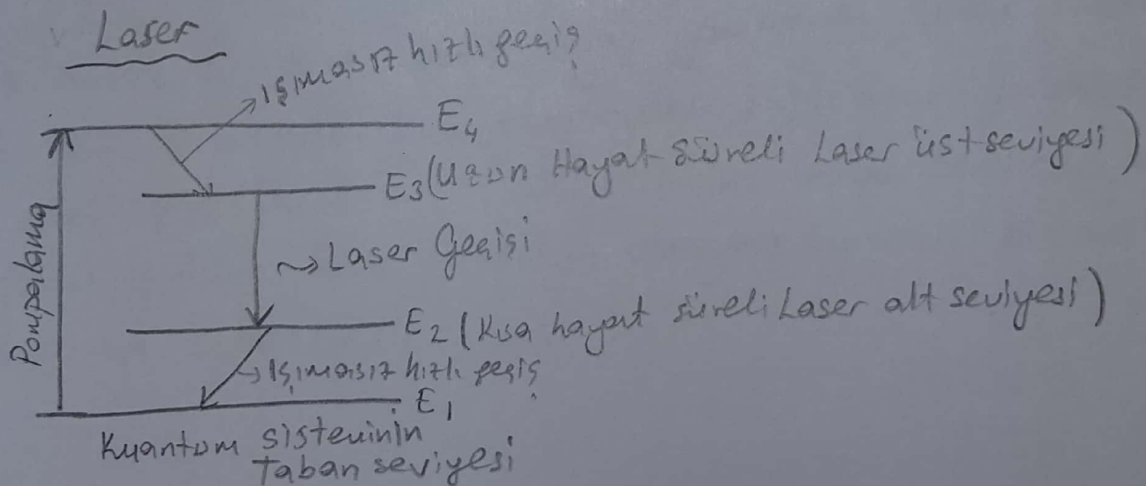 Laser
Işımasız hızlı geçiş
E4
E3 (Uzun Hayat Süreli Laser üst seviyesi)
Pompalama
~> Laser Geçişi
E2 (Kısa hayat süreli Laser alt seviyesi)
Işımasız hızlı geçiş
E1
Kuantum sisteminin
taban seviyesi